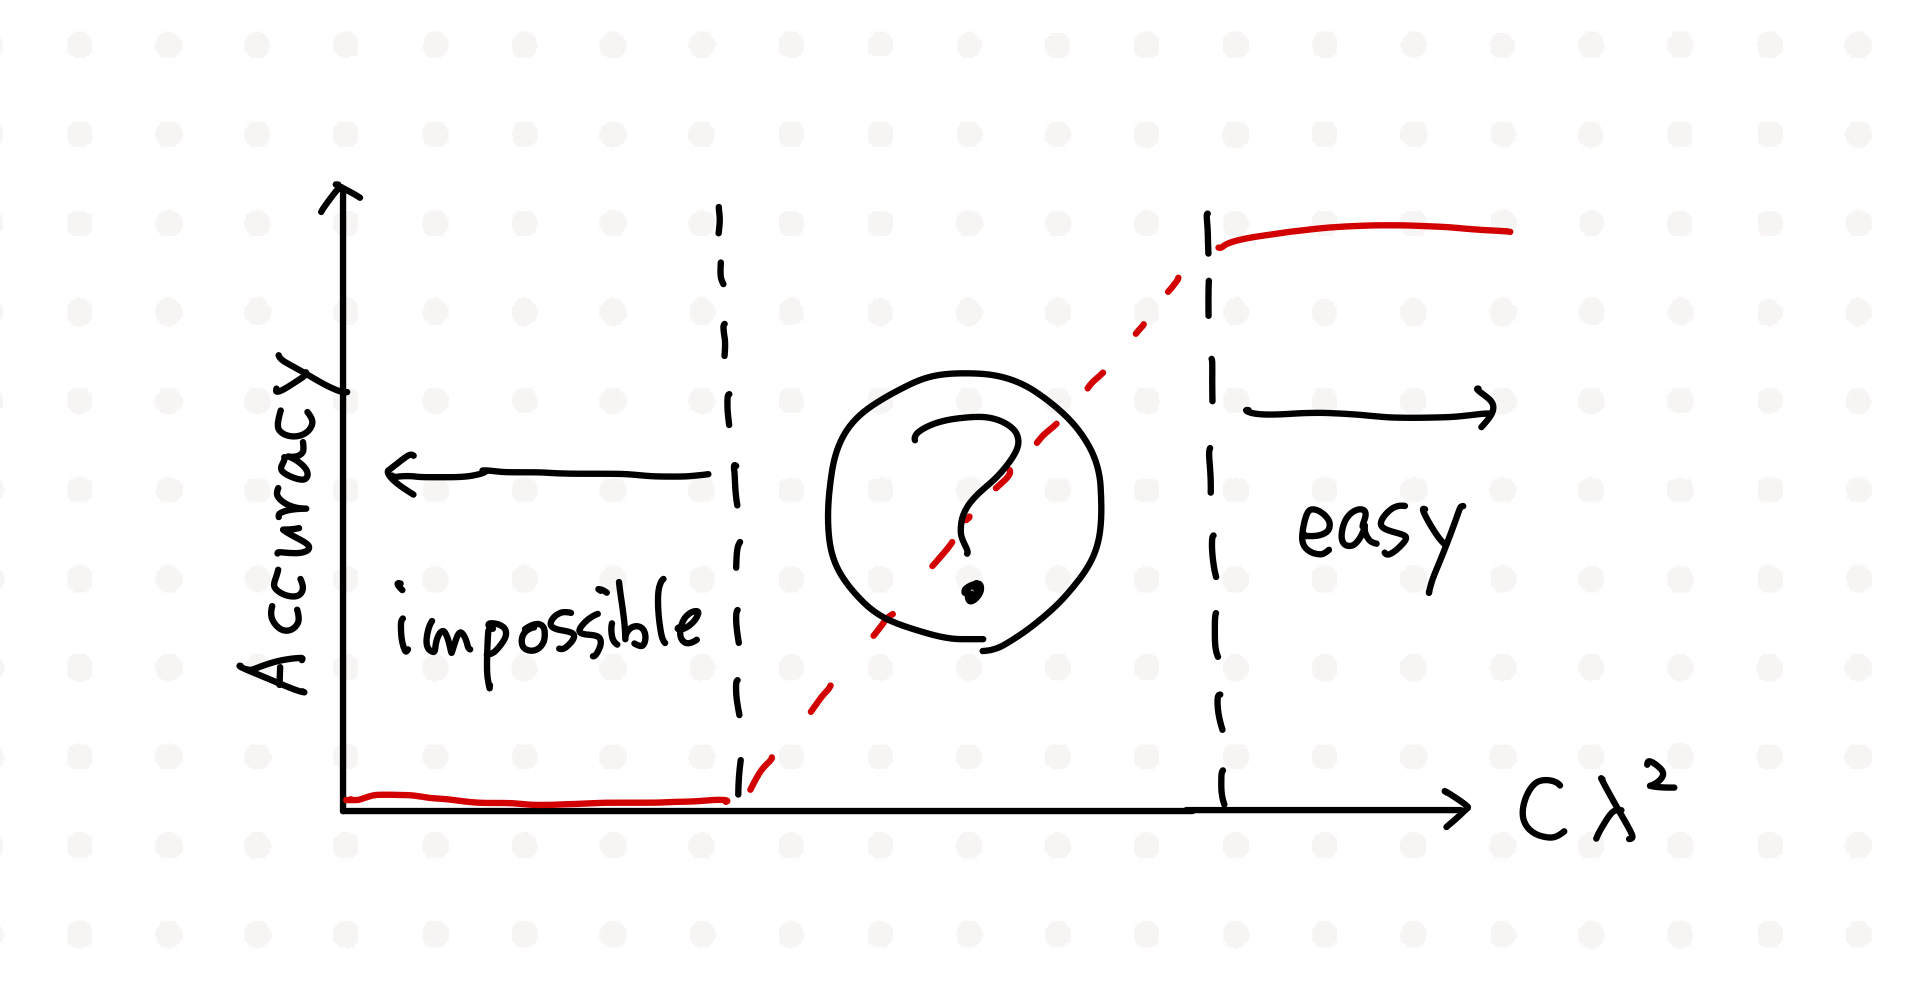 Accuracy
impossible
?
easy
Cλ²